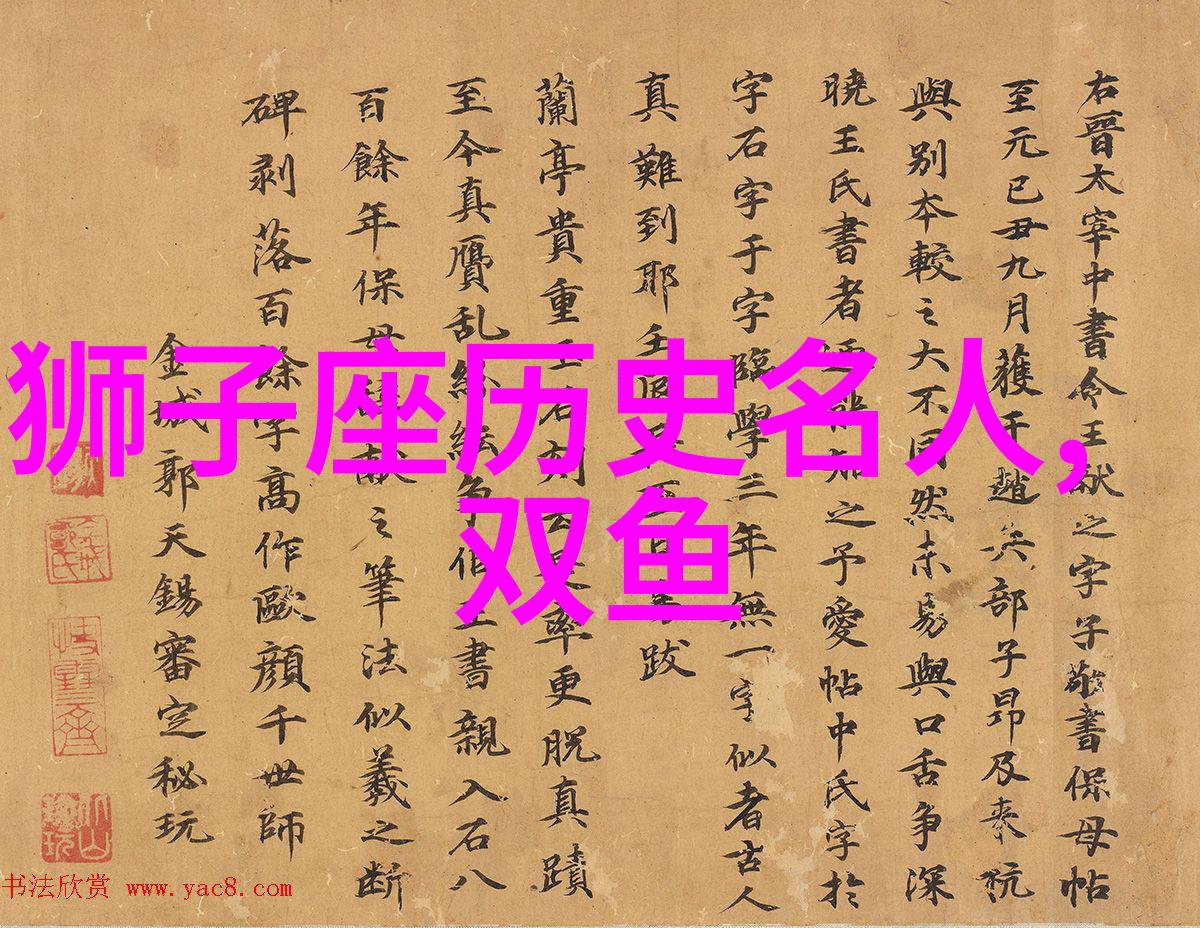 右晉太宰中書令王獻之字子敬書保母帖
至元己丑九月獲于趙兵部子昂及来杭
與别本較之大不同然未易與口舌争深
曉王氏書者能知之予愛帖中氏字於
字石字于字臨學三年無一字似者古人
真難到耶壬跋
蘭亭貴重石刻率更脱真蹟
至今真贗乱争書親入石八
百餘年保母之筆法似羲之断
碑剥落百餘字高作歐顔千世師
金城郭天錫審定秘玩
狮子座历史名人,
双鱼
书法欣赏 www.yac8.com